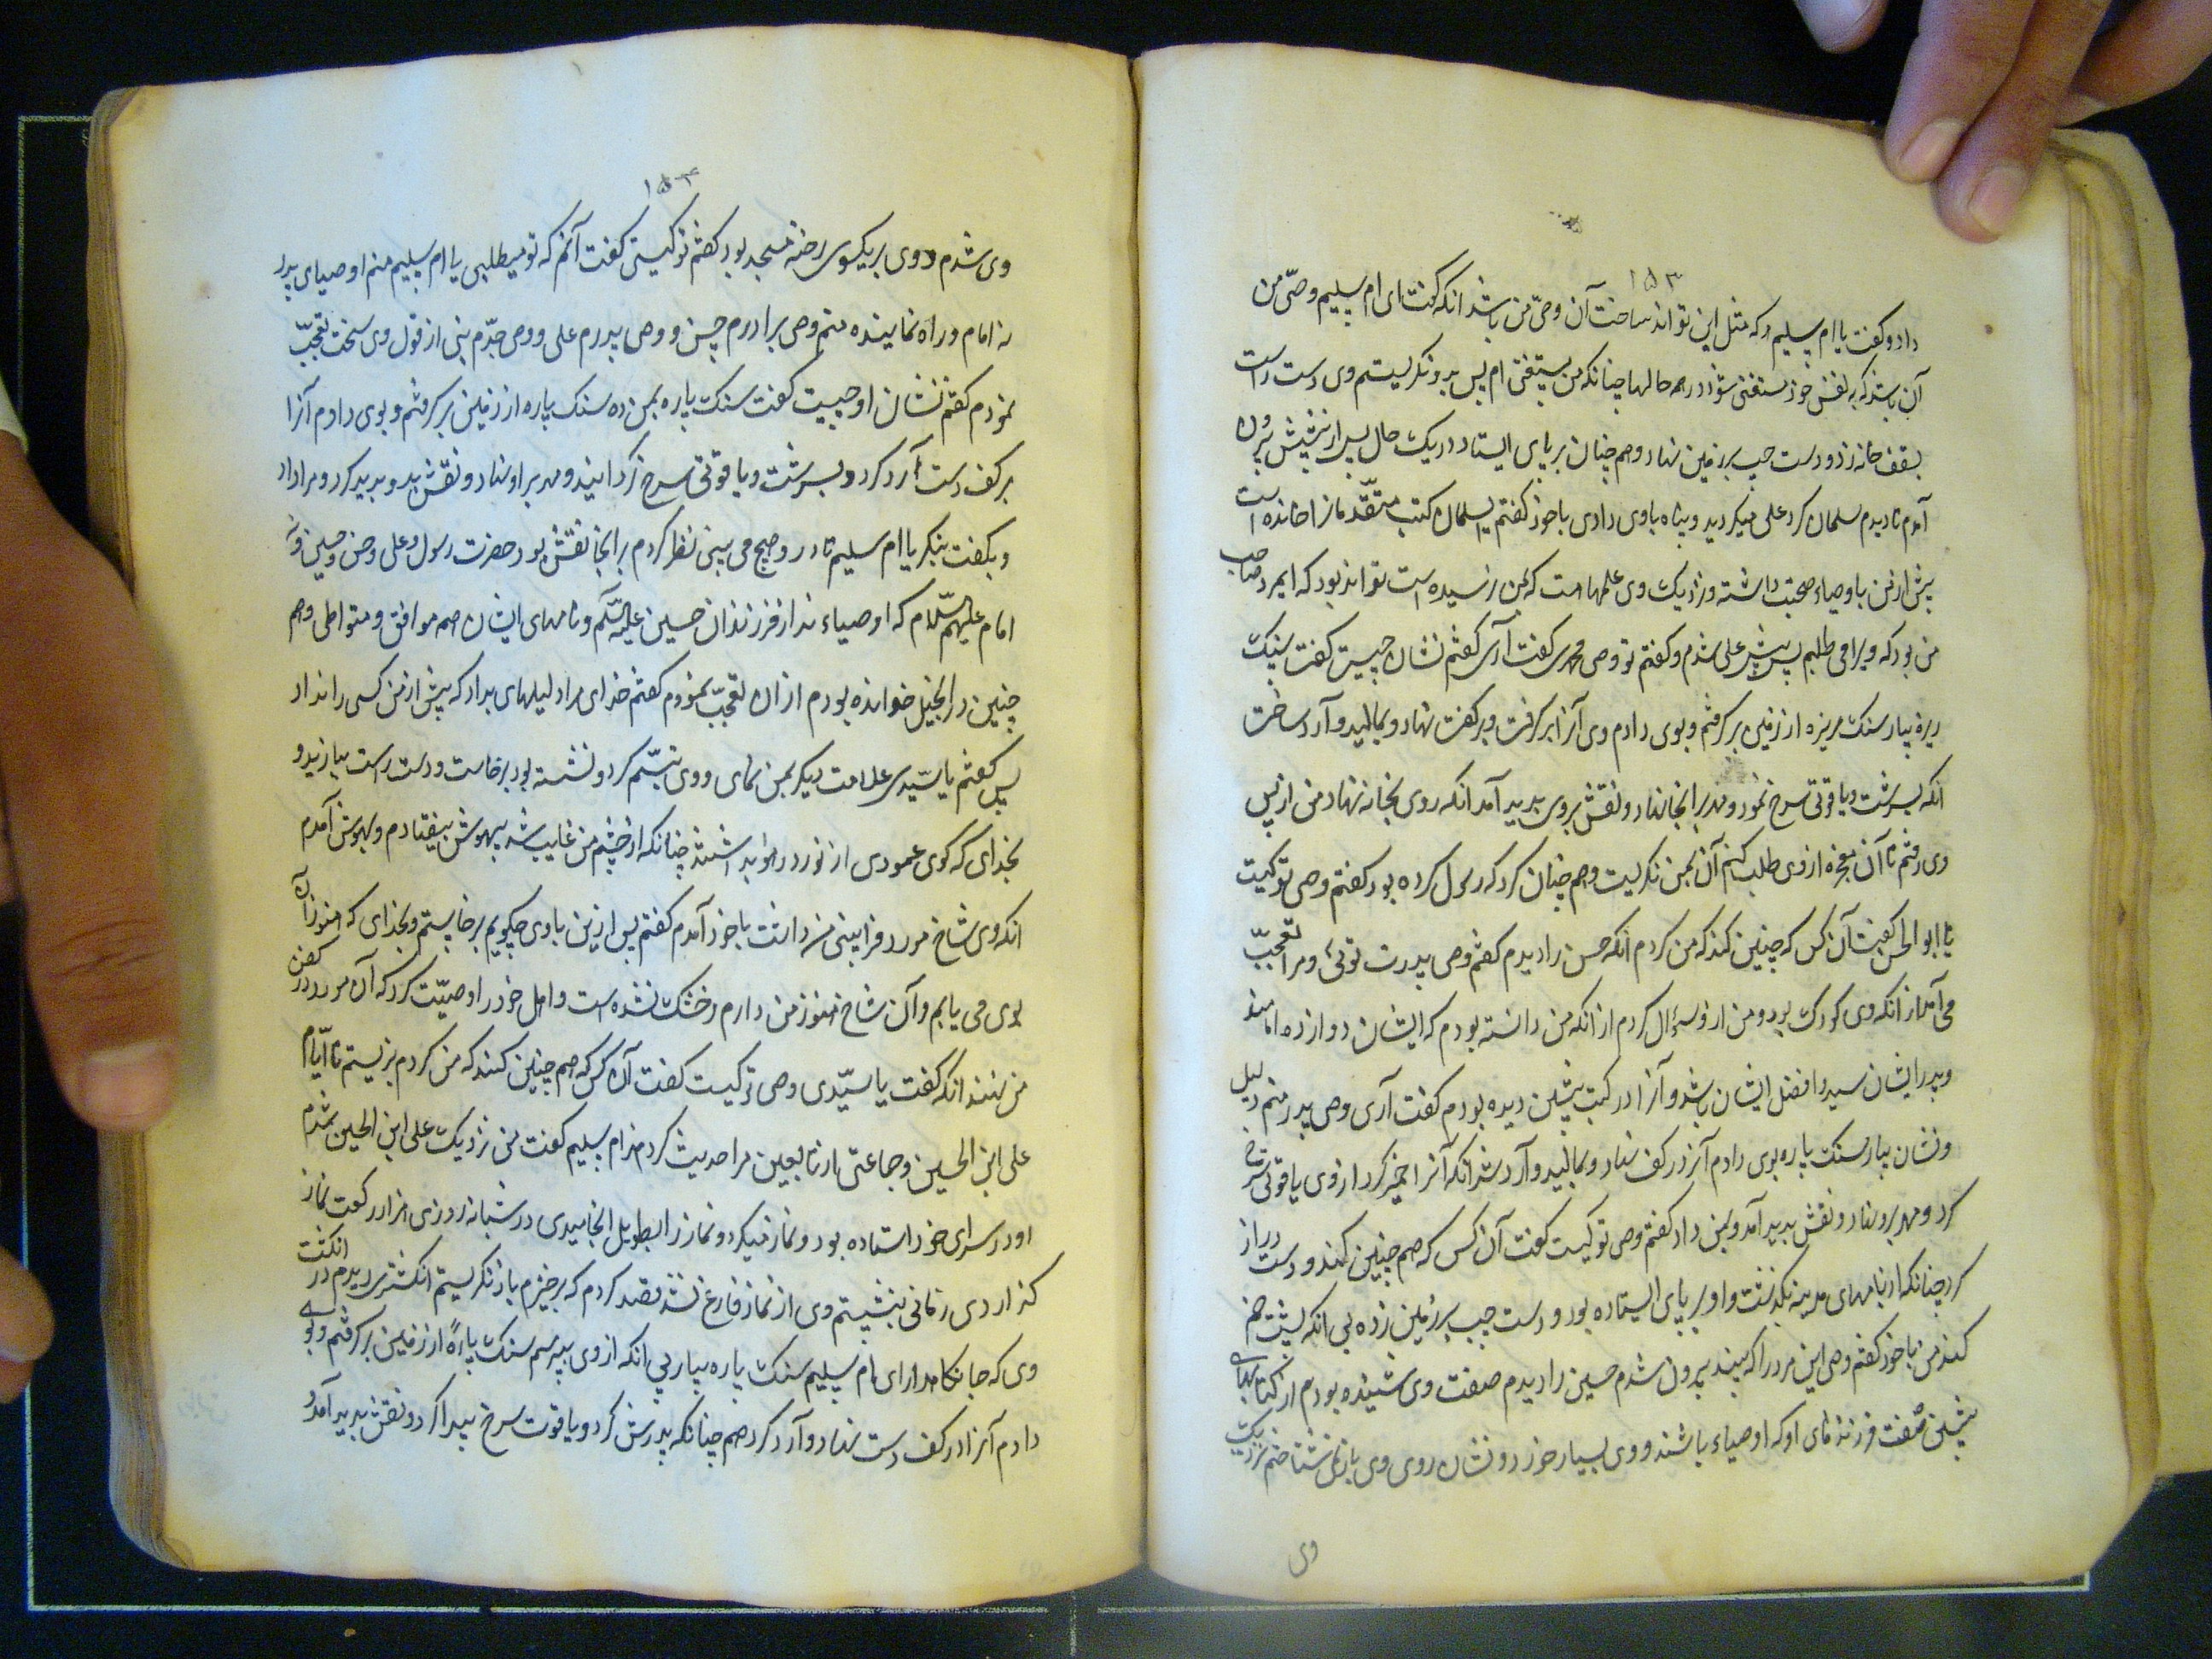 ۱۵۳
داد و گفت یا ام سلیم هر که مثل این تواند ساخت آن وصی من باشد انکه گفت ای ام سلیم وصی من
آن باشد که به نفس خود مستغنی شود در همه حالها چنانکه من مستغنی ام پس بدو نگریستم وی دست راست
بسقف خانه زد و دست چپ بر زمین نهاد و هم چنان بر پای ایستاد در یک حال پس از پیشش برون
آمدم تا دیدم سلمان گرد علی میگردید و پناه با وی دادی با خود گفتم سلمان کتب متقدمانرا خوانده است
پیش از من با وصیاء صحبت داشته و نزدیک وی علمها است که بمن نرسیده است تواند بود که این مرد صاحب
من بود که ویرا می طلبم پس پیش علی شدم و گفتم تو وصی محمدی گفت آری گفتم نشان چیست گفت سنک
ریزه بیار سنک ریزه از زمین بر گرفتم و بوی دادم وی آنرا بر گرفت و بر کف نهاد و بمالید و آرد ساخت
انکه بسرشت و یاقوتی سرخ نمود و مهر بر انجا نهاد و نقش بر وی بدید آمد انکه روی بخانه نهاد من از پس
وی رفتم تا آن معجزه از وی طلب کنم آن بمن نگریست و هم چنان کرد که رسول کرده بود گفتم وصی تو کیست
یا ابو الحسن گفت آن کس که چنین کند که من کردم انکه حسن را دیدم گفتم وصی پدرت توئی و مرا تعجب
می آمد از انکه وی کودک بود و من ازو سؤال کردم از انکه من دانسته بودم که ایشان دوازده امامند
و پدر ایشان سید و افضل ایشان باشد و آنرا در کتب پیشین دیده بودم گفت آری وصی پدر منم دلیل
و نشان بیار سنک پاره بوی دادم آنرا در کف نهاد و بمالید و آرد شد انکه آنرا خمیر کرد از وی یاقوتی سرخ
کرد و مهر برو نهاد و نقش بدید آمد و بمن داد گفتم وصی تو کیست گفت آن کس که هم چنین کند و دست دراز
کرد چنانکه از بامهای مدینه بگذشت و او بر پای ایستاده بود و دست چپ بر زمین زده بی انکه پشت خم
کند من با خود گفتم وصی این مرد را که بیند برون شدم حسین را دیدم صفت وی شنیده بودم از کتابهای
پیشین صفت فرزندهای او که اوصیاء باشند و وی بسیار خورد و نشان روی وی باز شناختم نزدیک
وی
۱۵۴
وی شدم و وی بر یکسوی رخنه مسجد بود گفتم تو کیستی گفت آنم که تو میطلبی یا ام سلیم منم اوصیای پدر
نه امام و راه نماینده منم وصی برادرم حسن و وصی پدرم علی و وصی جدم نبی از قول وی سخت تعجب
نمودم گفتم نشان او چیست گفت سنک پاره بمن ده سنک پاره از زمین بر گرفتم و بوی دادم آنرا
بر کف دست آرد کرد و بسرشت و یاقوتی سرخ گردانید و مهر بر او نهاد و نقش بدو بدید کرد و مرا داد
و بگفت بنگر یا ام سلیم تا درو هیچ می بینی نظر کردم بر انجا نقش بود حضرت رسول و علی و حسن و حسین و نه
امام علیهم السلام که اوصیاء ند از فرزندان حسین علیه السلام و نامهای ایشان هم موافق و متواطی و هم
چنین در انجیل خوانده بودم از ان تعجب نمودم گفتم خدای مرا دلیلهای بداد که پیش از من کسی را نداد
پس گفتم یا سیدی علامت دیگر بمن نمای و وی تبسم کرد و نشسته بود برخاست و دست راست بیازید و
بخدای که گوی عمودی از نور در هوا بداشتند چنانکه از چشم من غایب شد بیهوش بیفتادم و بهوش آمدم
انکه وی شاخ مورد فرا بینی من داشت با خود آمدم گفتم پس ازین با وی چگویم برخاستم و بخدای که هنوز از آن
بوی می یابم و آن شاخ هنوز من دارم و خشک نشده است و اهل خود را وصیت کرد که آن مورد در کفن
من نهند انکه گفت یا سیدی وصی تو کیست گفت آن کس که هم چنین کند که من کردم بزیستم تا ایام
علی ابن الحسین و جماعتی از تابعین مرا حدیث کردند از ام سلیم گفت من نزدیک علی ابن الحسین شدم
او در سرای خود استاده بود و نماز میکرد و نماز را بطویل انجامیدی در شبانه روزی هزار رکعت نماز
گذاردی زمانی بنشستم وی از نماز فارغ نشد قصد کردم که برخیزم باز نگریستم انگشتری دیدم در انگشت
وی که جا نگاه دار ای ام سلیم سنک پاره بیار بی انکه از وی بپرسم سنک پاره از زمین بر گرفتم و بوی
دادم آنرا در کف دست نهاد و آرد کرد هم چنانکه پدرش کرد و یاقوت سرخ پیدا کرد و نقش بدید آمد و